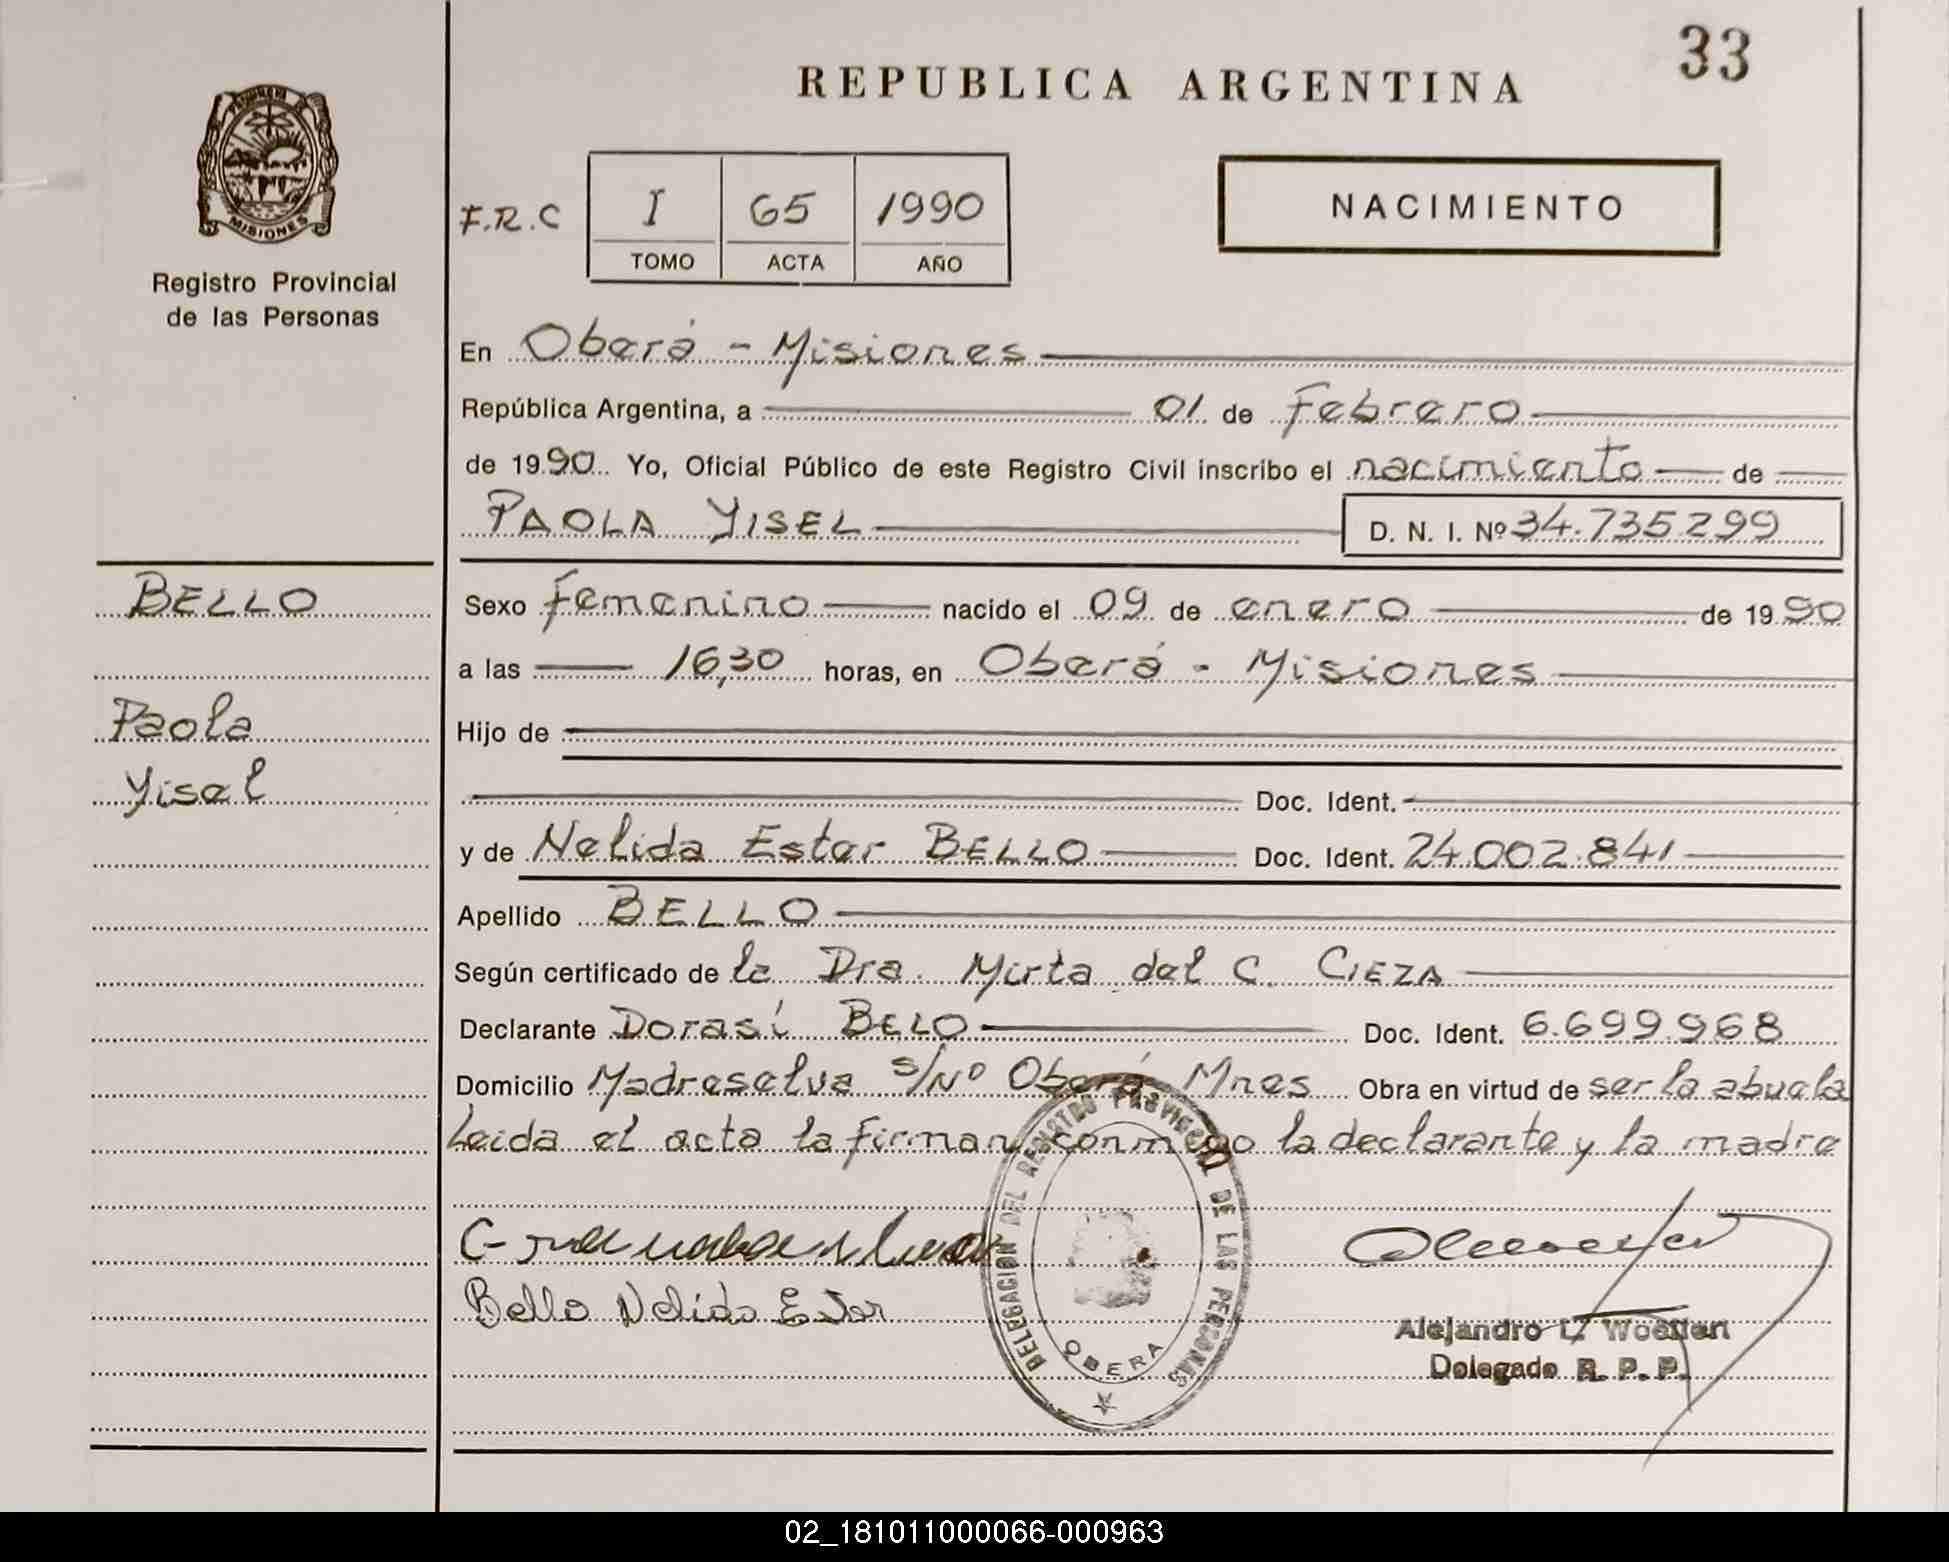 33
REPUBLICA ARGENTINA
MISIONES
Registro Provincial
de las Personas
F.R.C
I 65 1990
TOMO ACTA AÑO
NACIMIENTO
En Oberá - Misiones
República Argentina, a 01 de Febrero
de 1990 Yo, Oficial Público de este Registro Civil inscribo el nacimiento de
PAOLA YISEL D. N. I. Nº 34.735.299
BELLO
Paola
Yisel
Sexo Femenino nacido el 09 de enero de 1990
a las 16,30 horas, en Oberá - Misiones
Hijo de
Doc. Ident.
y de Nelida Ester BELLO Doc. Ident. 24.002.841
Apellido BELLO
Según certificado de la Dra. Mirta del C. CIEZA
Declarante Dorasí BELO Doc. Ident. 6.699.968
Domicilio Madreselva s/Nº Oberá Mnes Obra en virtud de ser la abuela
Leida el acta la firman conmigo la declarante y la madre
Bello Nelida Ester
DELEGACION DEL REGISTRO PROVINCIAL DE LAS PERSONAS
OBERA
Alejandro L.
Delegado R. P. P.
02_181011000066-000963